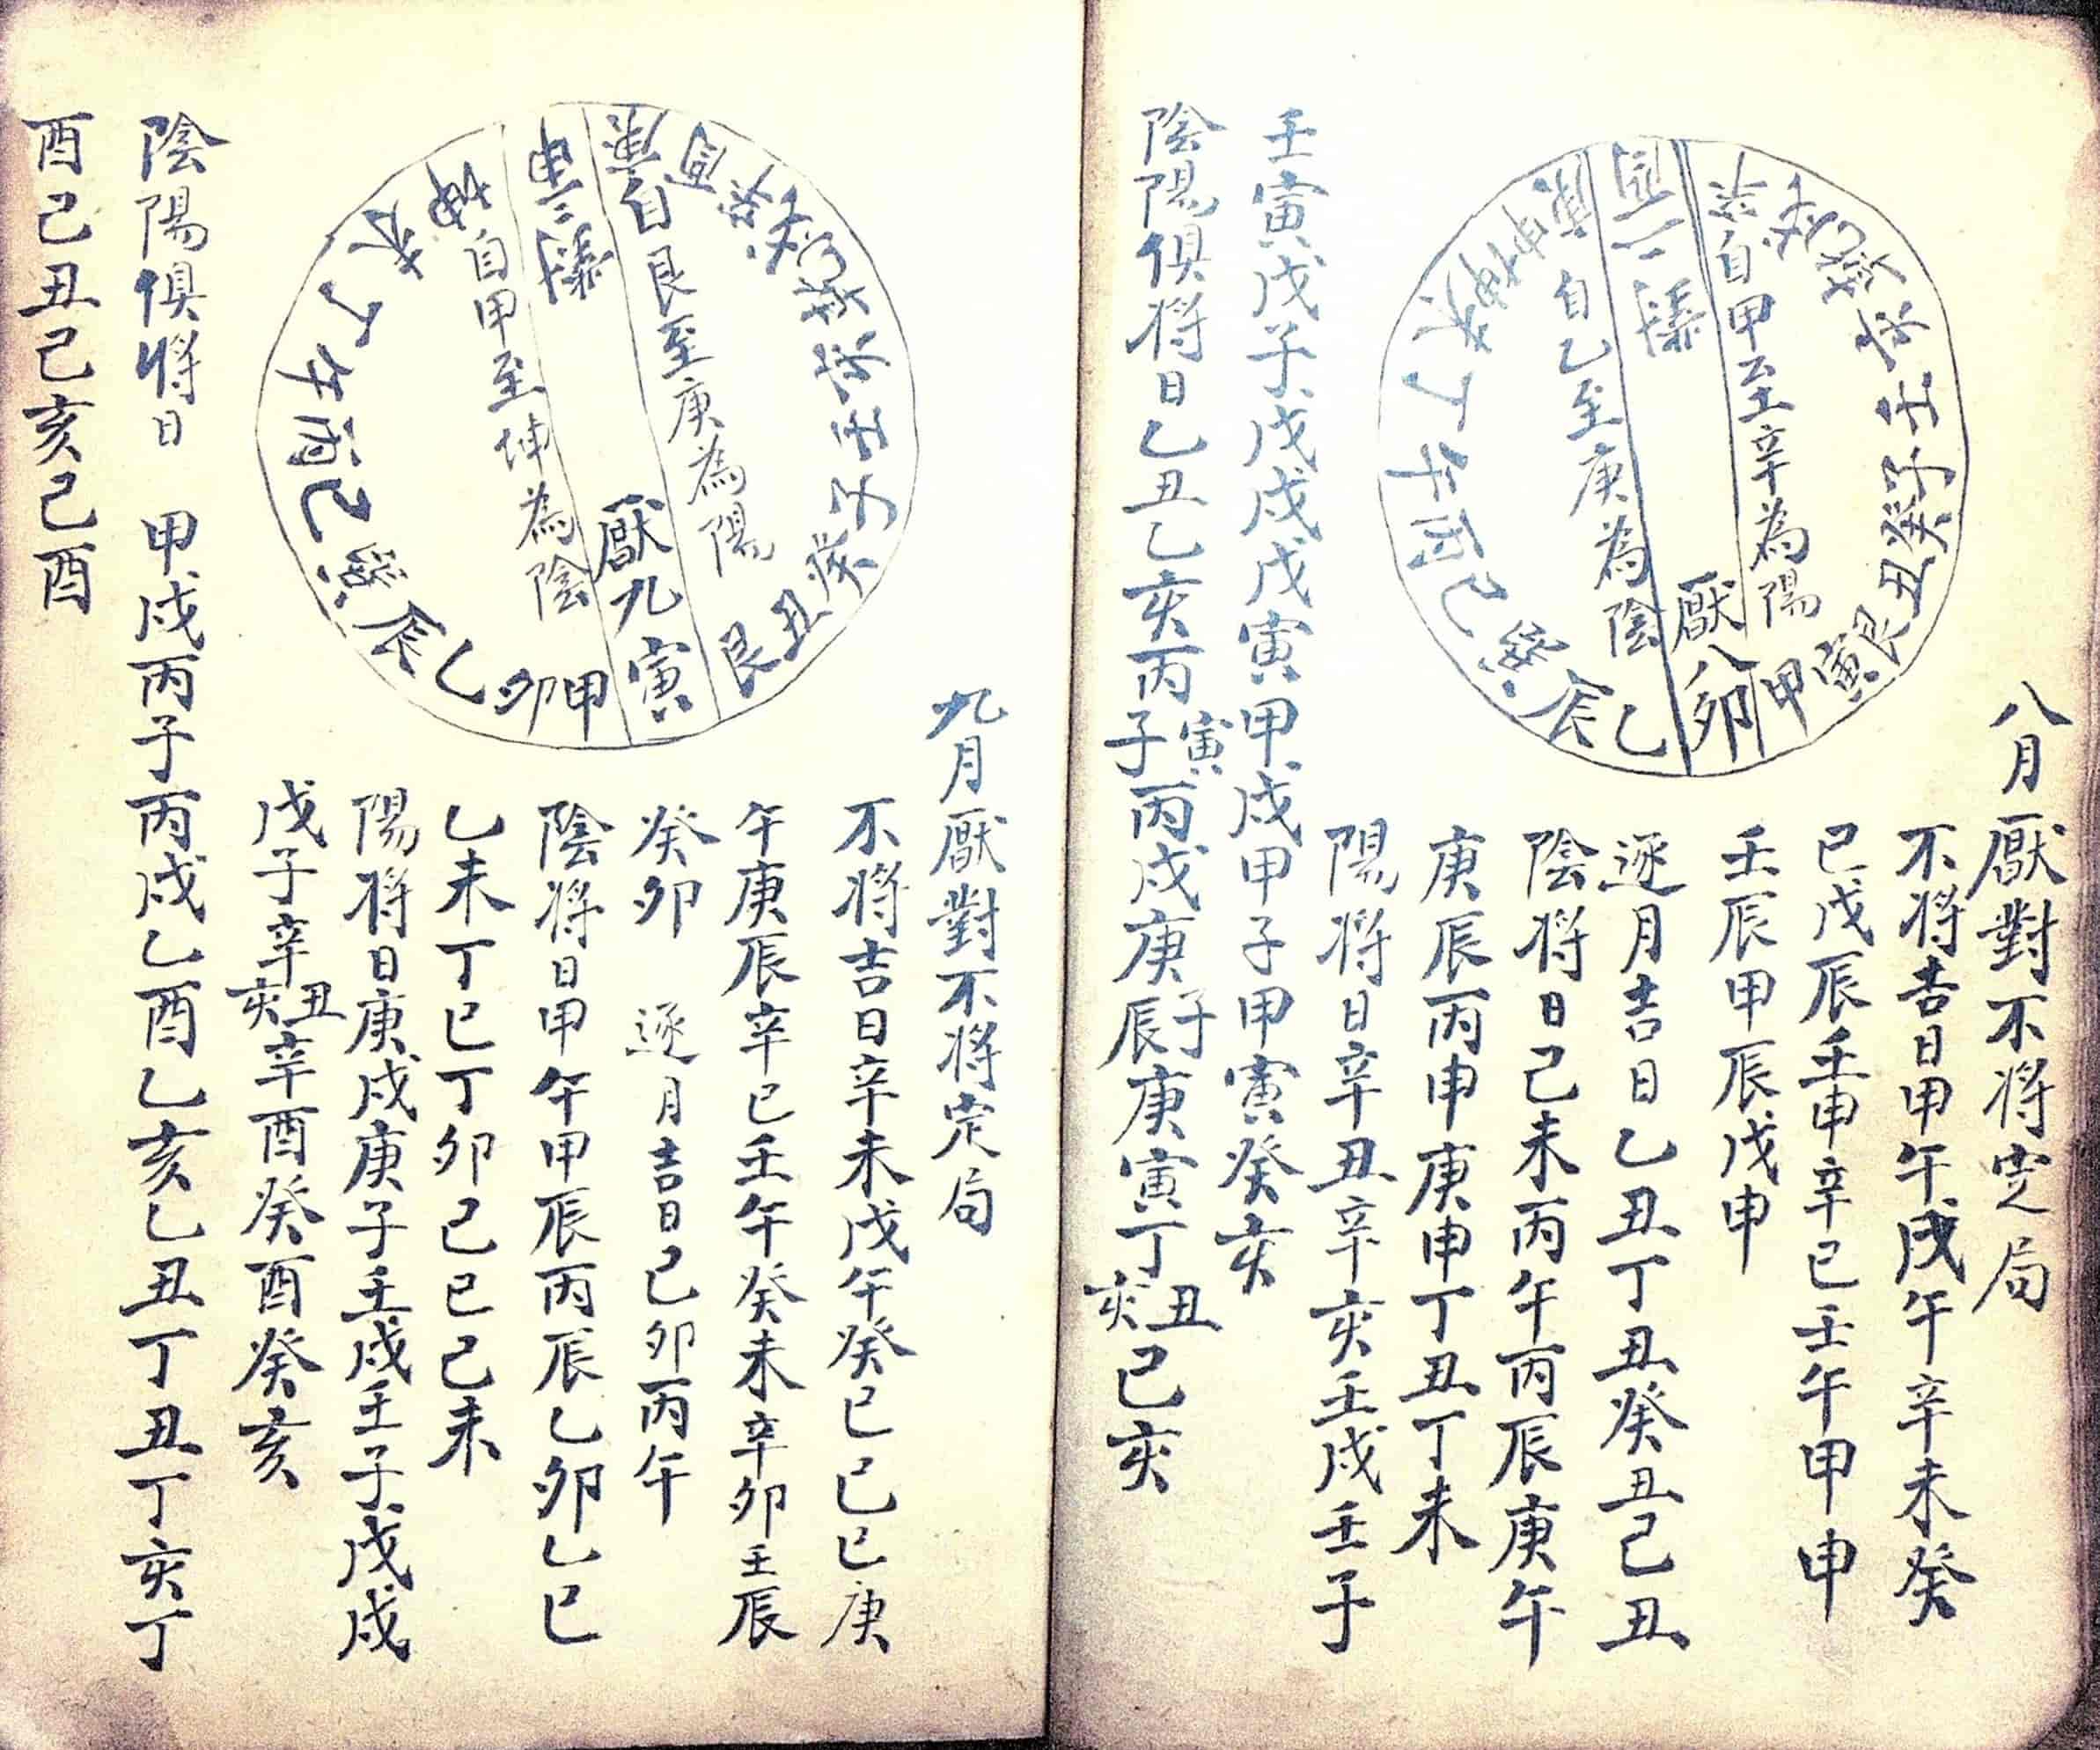 八月厭對不將定局
不將吉日甲午戌午辛未癸
巳戊辰壬申辛巳壬午甲申
壬辰甲辰戊申
逐月吉日乙丑丁丑癸丑己丑
陰將日己未丙午丙辰庚午
庚辰丙申庚申丁丑丁未
陽將日辛丑辛亥壬戌壬子
壬寅戊子戊戌戊寅甲戌甲子甲寅癸亥
陰陽俱將日乙丑乙亥丙子寅丙戌庚辰子庚寅丁丑亥己亥
自甲至辛為陽
自乙至庚為陰
厭八卯
甲寅艮丑癸子壬
乙辰巽巳丙午丁未坤申庚
九月厭對不將定局
不將吉日辛未戊午癸巳己巳庚
午庚辰辛巳壬午癸未辛卯壬辰
癸卯 逐月吉日己卯丙午
陰將日甲午甲辰丙辰乙卯乙巳
乙未丁巳丁卯己巳己未
陽將日庚戌庚子壬戌壬子戊戌
戊子辛丑亥辛酉癸酉癸亥
自艮至庚為陽
自甲至坤為陰
厭九寅
艮丑癸子壬
甲卯乙辰巽巳丙午丁未坤
陰陽俱將日 甲戌丙子丙戌乙酉乙亥乙丑丁丑丁亥丁
酉己丑己亥己酉